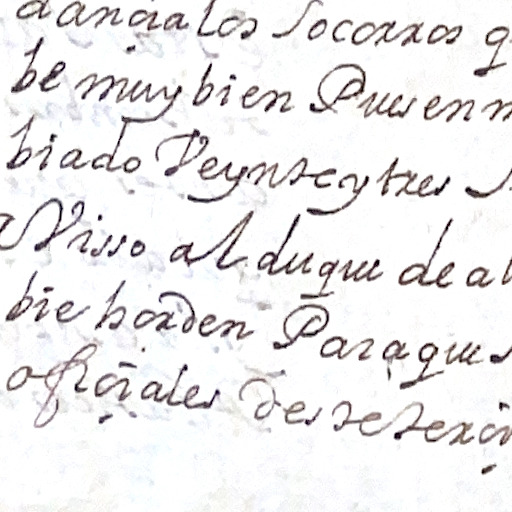 dancia los socorros q
be muy bien Pues en m
biado Veynte y tres S
Avisso al duque de al
bie horden Para que s
oficiales deste terci